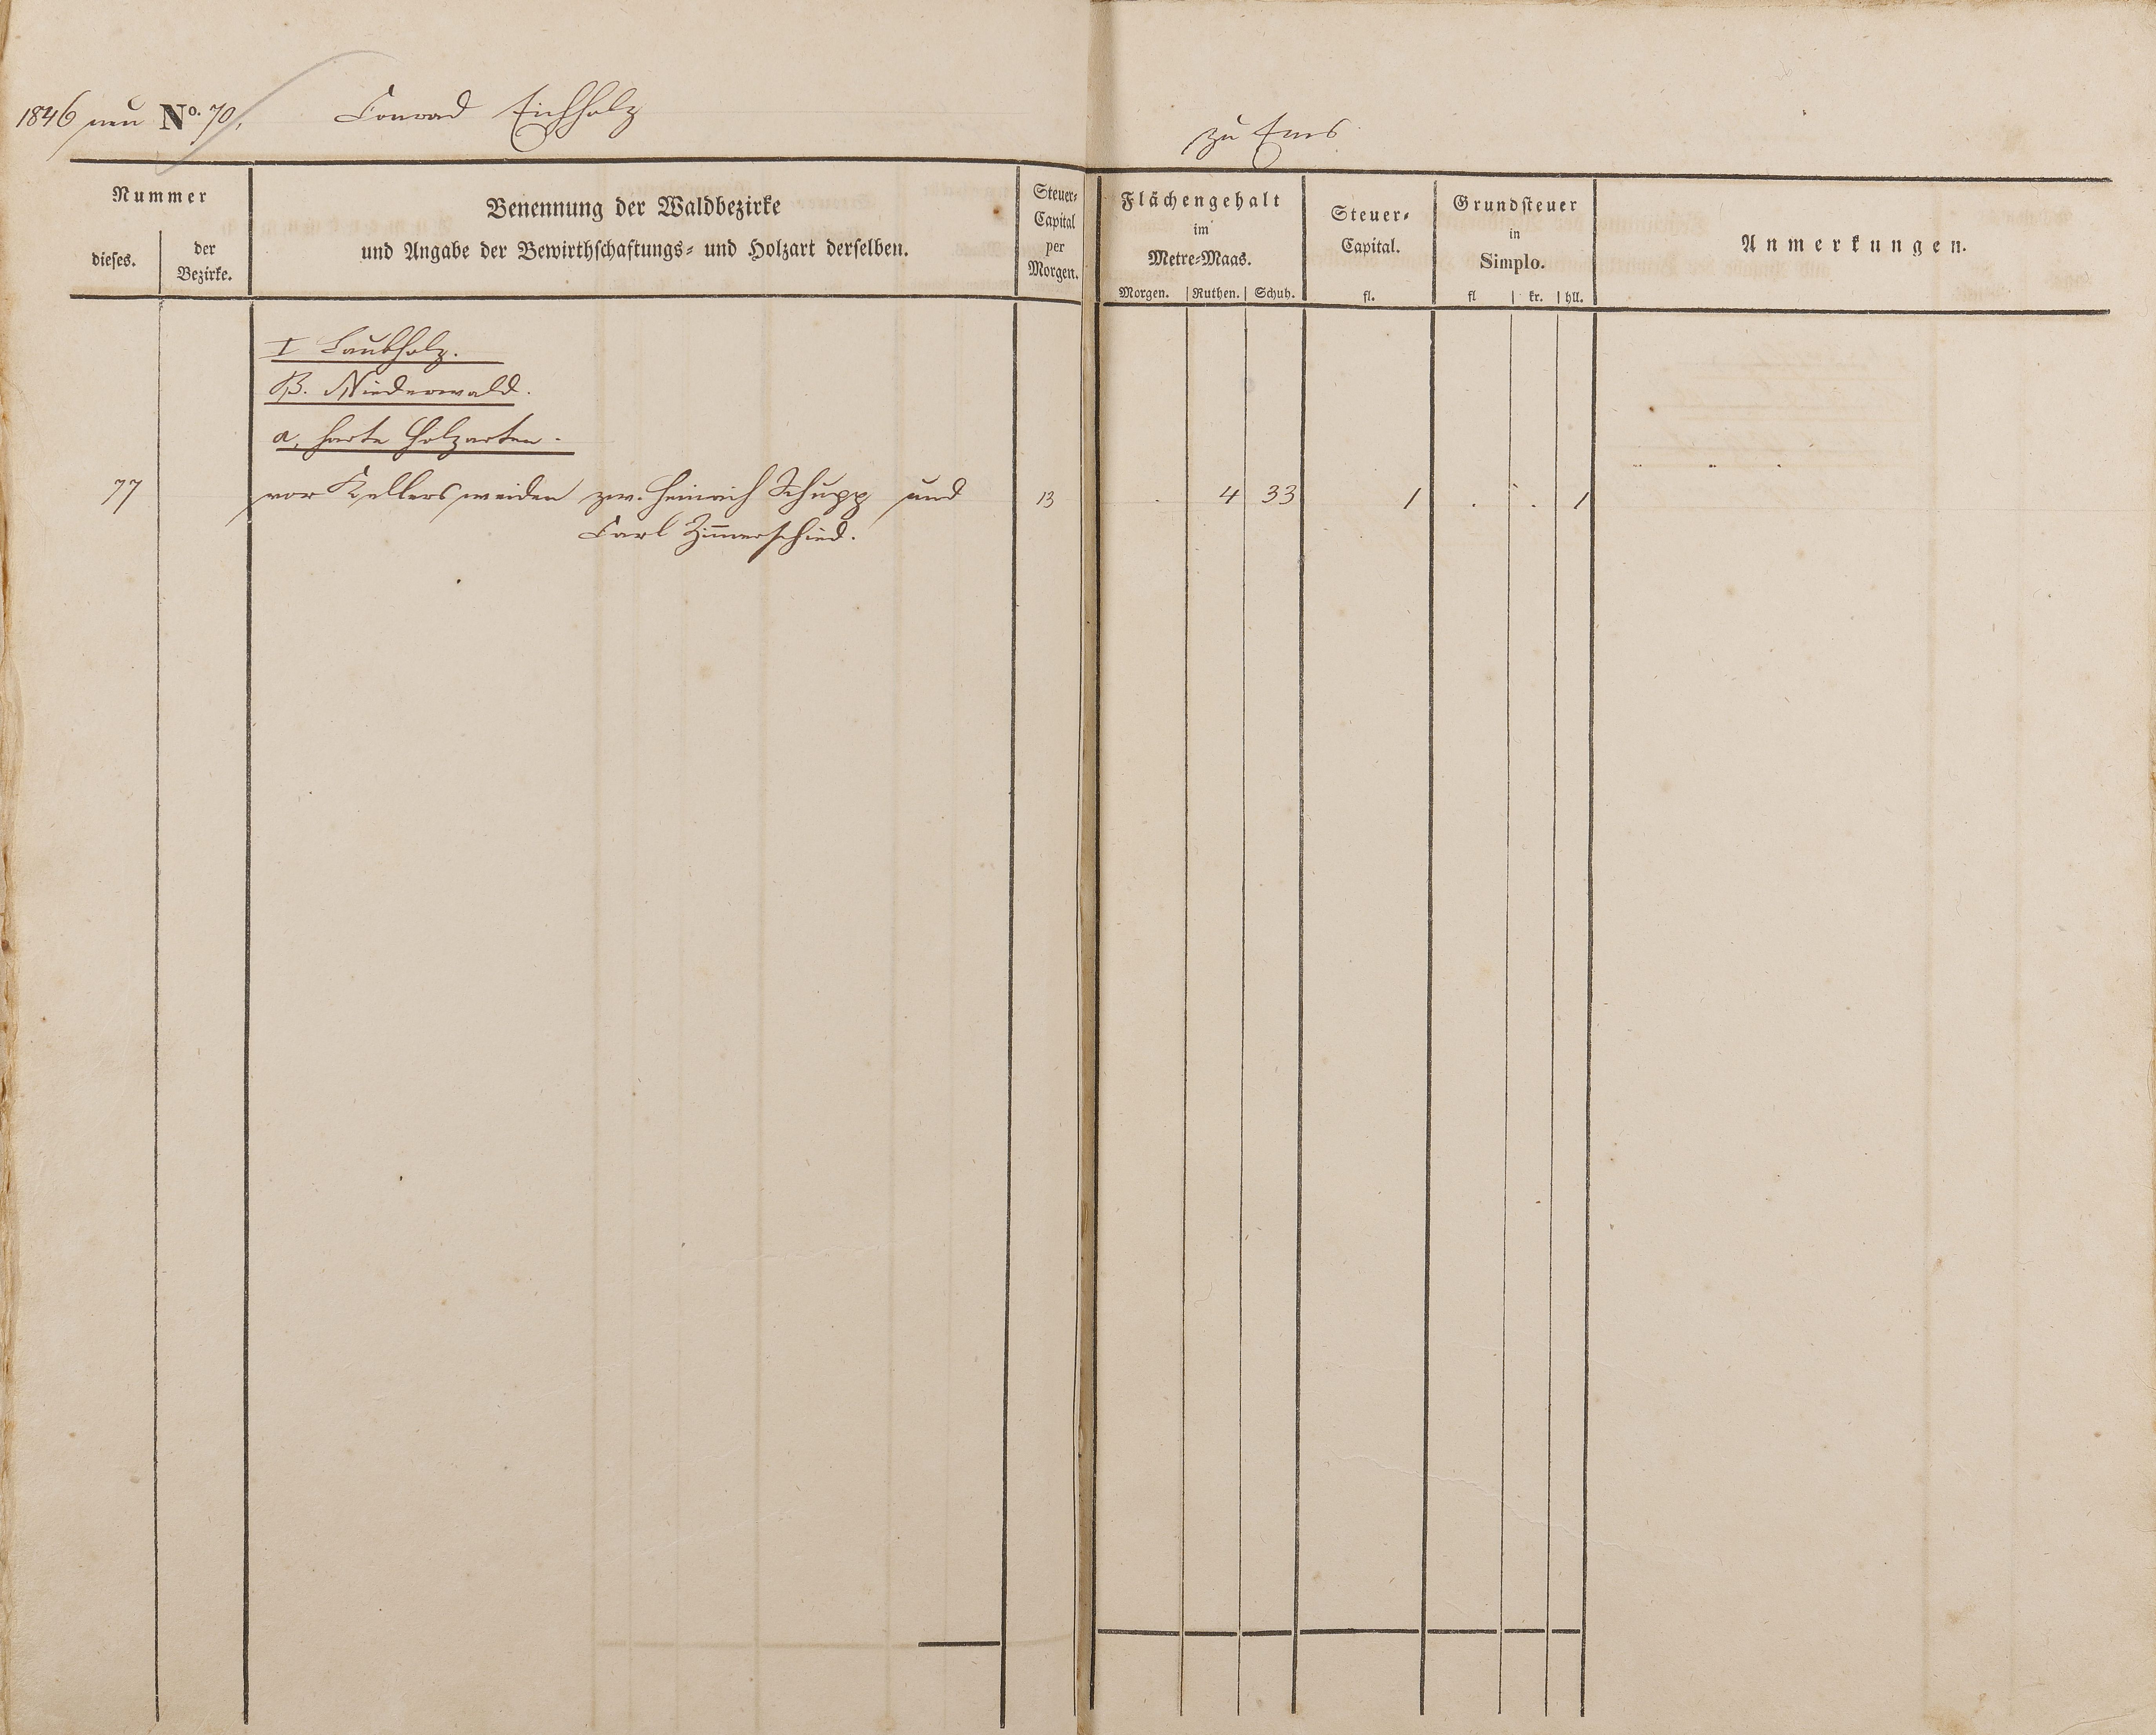 1846 neu No. 70. Conrad Eichholz
zu Ems
Nummer
dieses.
der
Bezirke.
Benennung der Waldbezirke
und Angabe der Bewirthschaftungs- und Holzart derselben.
Steuer-
Capital
per
Morgen.
Flächengehalt
im
Metre-Maas.
Morgen. Ruthen. Schuh.
Steuer-
Capital.
fl.
Grundsteuer
in
Simplo.
fl kr. hll.
Anmerkungen.
I Laubholz.
B. Niederwald.
a, harte Holzarten.
77 vor Kellersweiden zw. Heinrich Schupp und 13 . 4 33 1 . . 1
Carl Zim̄erschied.